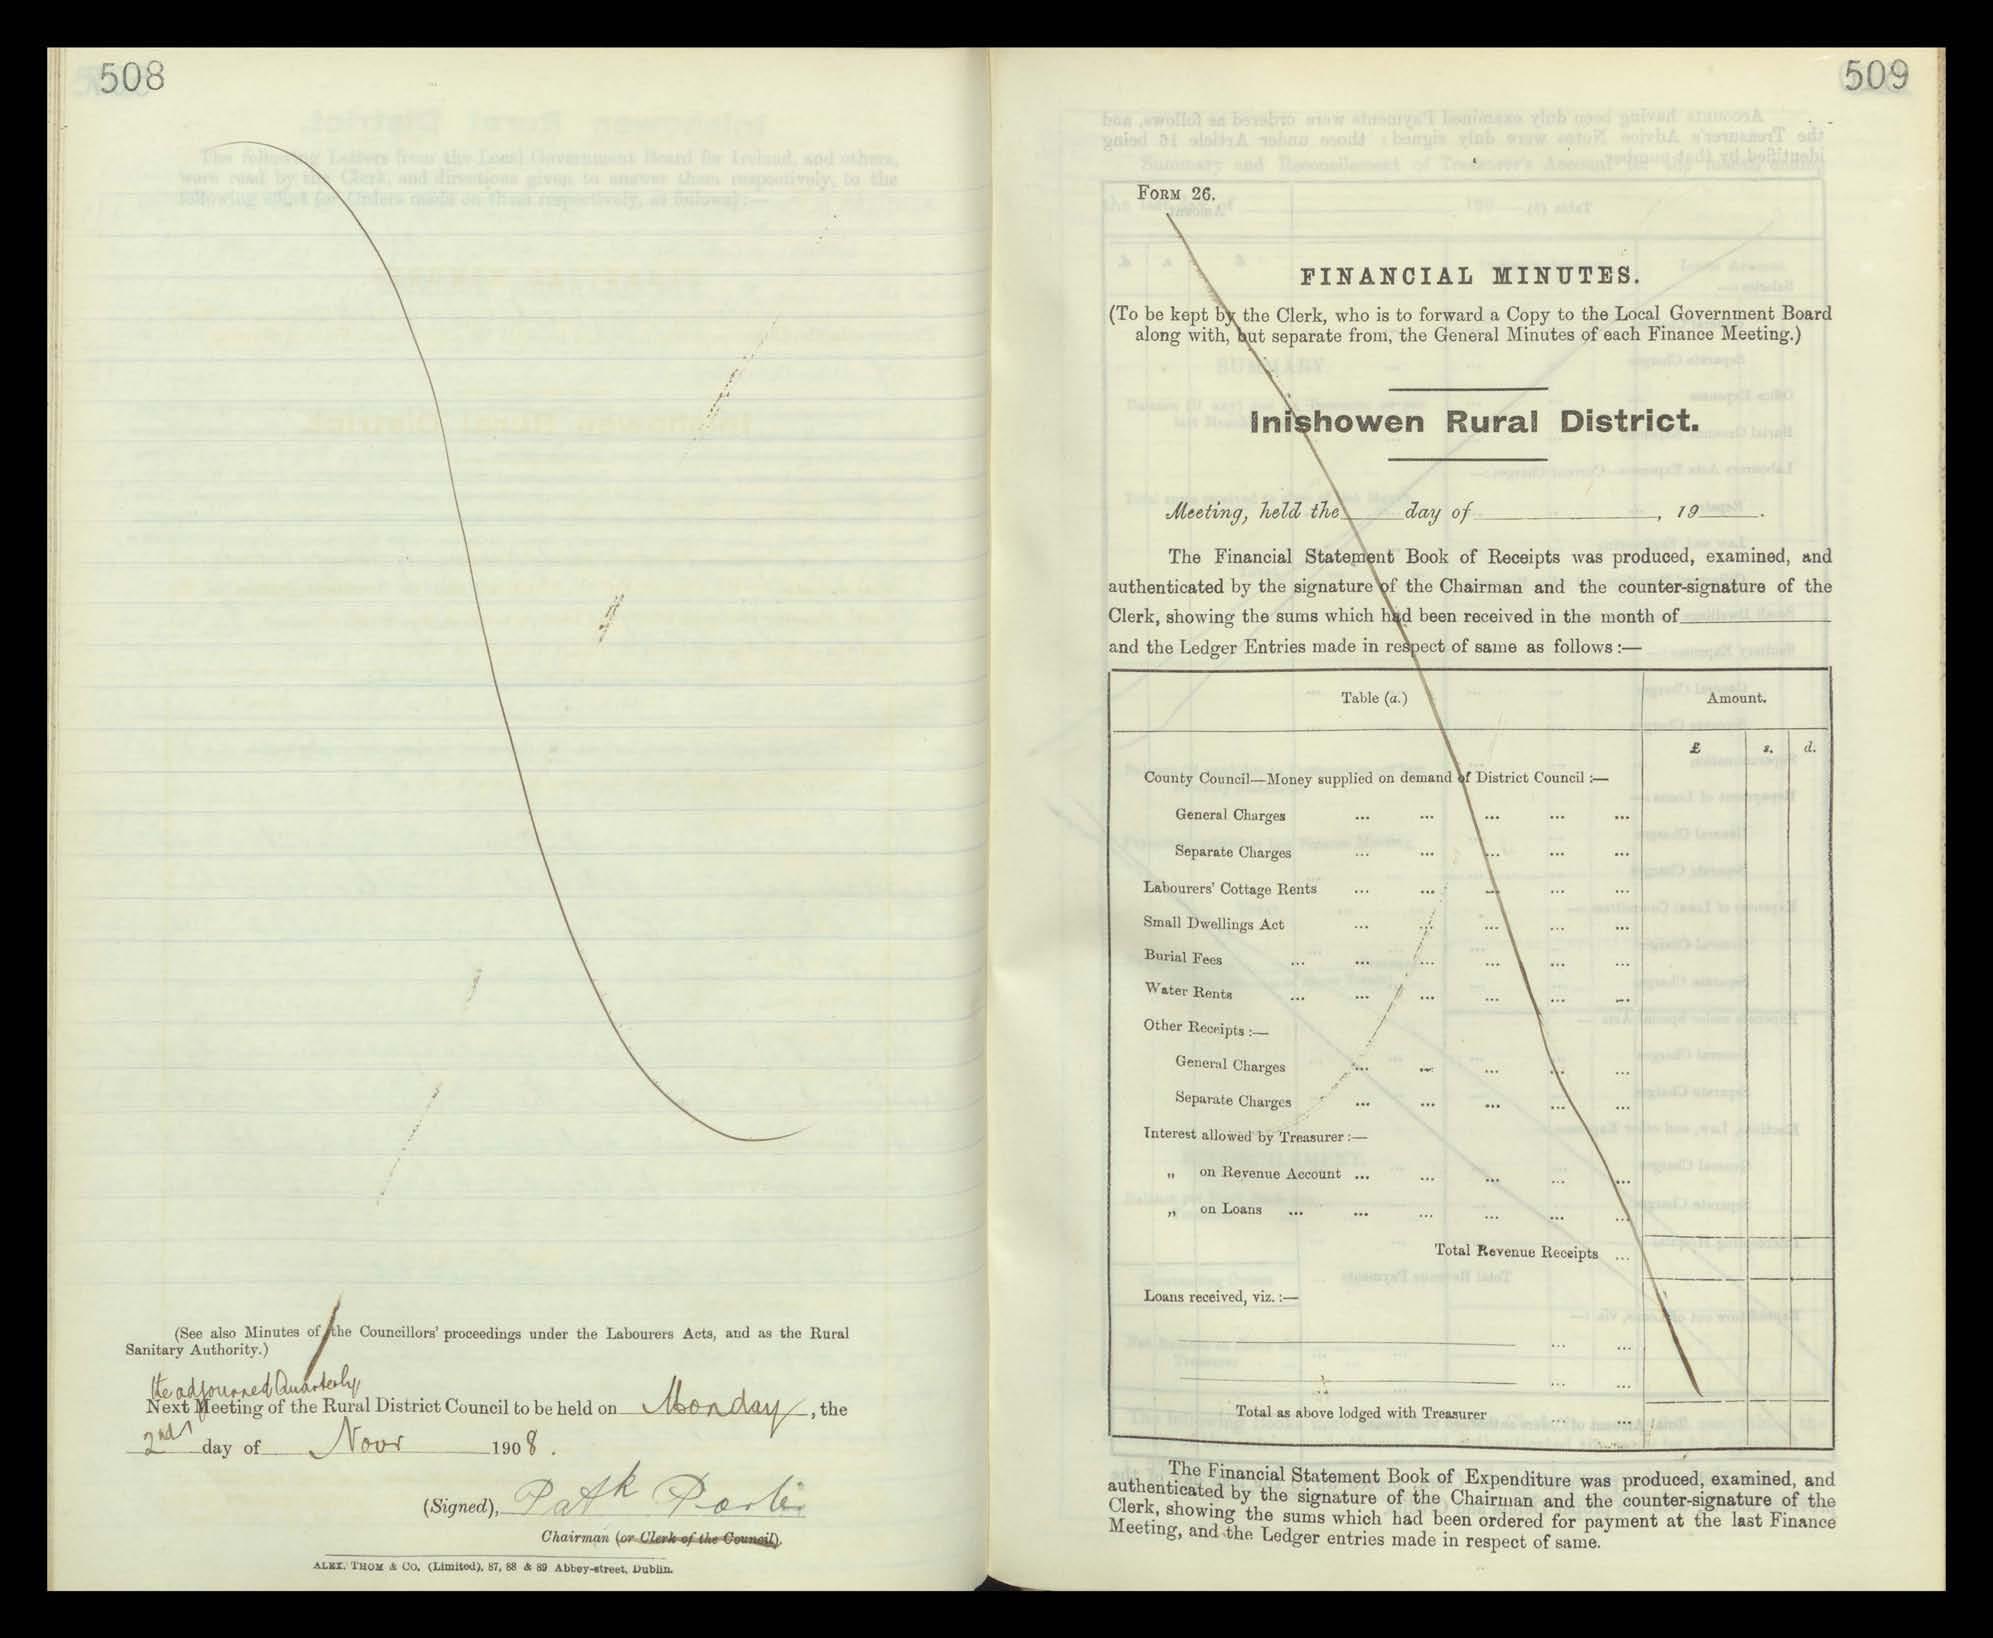 508
(See also Minutes of the Councillors' proceedings under the Labourers Acts, and as the Rural
Sanitary Authority.)
the adjourned Quarterly
Next Meeting of the Rural District Council to be held on Monday, the
2nd day of Novr 1908.
(Signed), Patk
Chairman (or Clerk of the Council).
ALEX. THOM & CO. (Limited), 87, 88 & 89 Abbey-street, Dublin.
509
FORM 26.
FINANCIAL MINUTES.
(To be kept by the Clerk, who is to forward a Copy to the Local Government Board
along with, but separate from, the General Minutes of each Finance Meeting.)
Inishowen Rural District.
Meeting, held the day of , 19 .
The Financial Statement Book of Receipts was produced, examined, and
authenticated by the signature of the Chairman and the counter-signature of the
Clerk, showing the sums which had been received in the month of
and the Ledger Entries made in respect of same as follows :—
Table (a.) Amount.
£ s. d.
County Council—Money supplied on demand of District Council :—
General Charges ... ... ... ... ...
Separate Charges ... ... ... ... ...
Labourers' Cottage Rents ... ... ... ... ...
Small Dwellings Act ... ... ... ... ...
Burial Fees ... ... ... ... ... ...
Water Rents ... ... ... ... ... ...
Other Receipts :—
General Charges ... ... ... ... ...
Separate Charges ... ... ... ... ...
Interest allowed by Treasurer :—
„ on Revenue Account ... ... ... ... ...
„ on Loans ... ... ... ... ... ...
Total Revenue Receipts ...
Loans received, viz. :—
... ...
... ...
Total as above lodged with Treasurer ... ...
The Financial Statement Book of Expenditure was produced, examined, and
authenticated by the signature of the Chairman and the counter-signature of the
Clerk, showing the sums which had been ordered for payment at the last Finance
Meeting, and the Ledger entries made in respect of same.